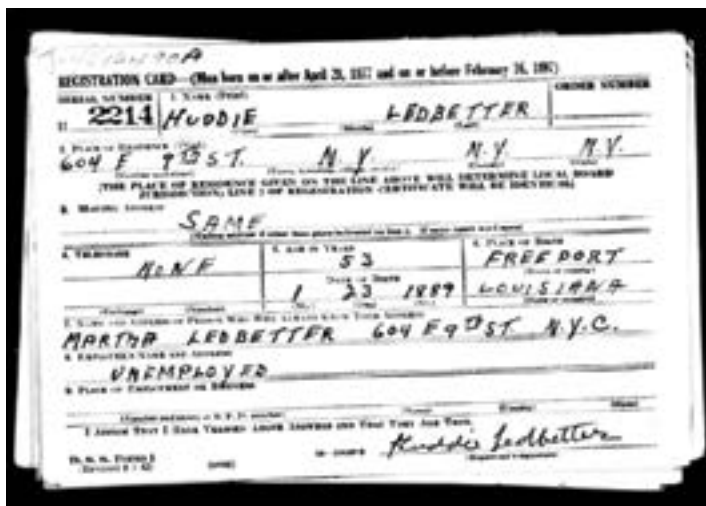 REGISTRATION CARD—(Men born on or after April 28, 1877 and on or before February 16, 1897)
SERIAL NUMBER 1. NAME (Print) ORDER NUMBER
U 2214 HUDDIE LEDBETTER
2. PLACE OF RESIDENCE (Print)
604 E 9TH ST. N.Y. N.Y. N.Y.
[THE PLACE OF RESIDENCE GIVEN ON THE LINE ABOVE WILL DETERMINE LOCAL BOARD
JURISDICTION; LINE 2 OF REGISTRATION CERTIFICATE WILL BE IDENTICAL]
3. MAILING ADDRESS
SAME
4. TELEPHONE 5. AGE IN YEARS 6. PLACE OF BIRTH
NONE 53 FREEPORT
DATE OF BIRTH
1 23 1889 LOUISIANA
7. NAME AND ADDRESS OF PERSON WHO WILL ALWAYS KNOW YOUR ADDRESS
MARTHA LEDBETTER 604 E 9TH ST N.Y.C.
8. EMPLOYER'S NAME AND ADDRESS
UNEMPLOYED
9. PLACE OF EMPLOYMENT OR BUSINESS
I AFFIRM THAT I HAVE VERIFIED ABOVE ANSWERS AND THAT THEY ARE TRUE.
Huddie Ledbetter